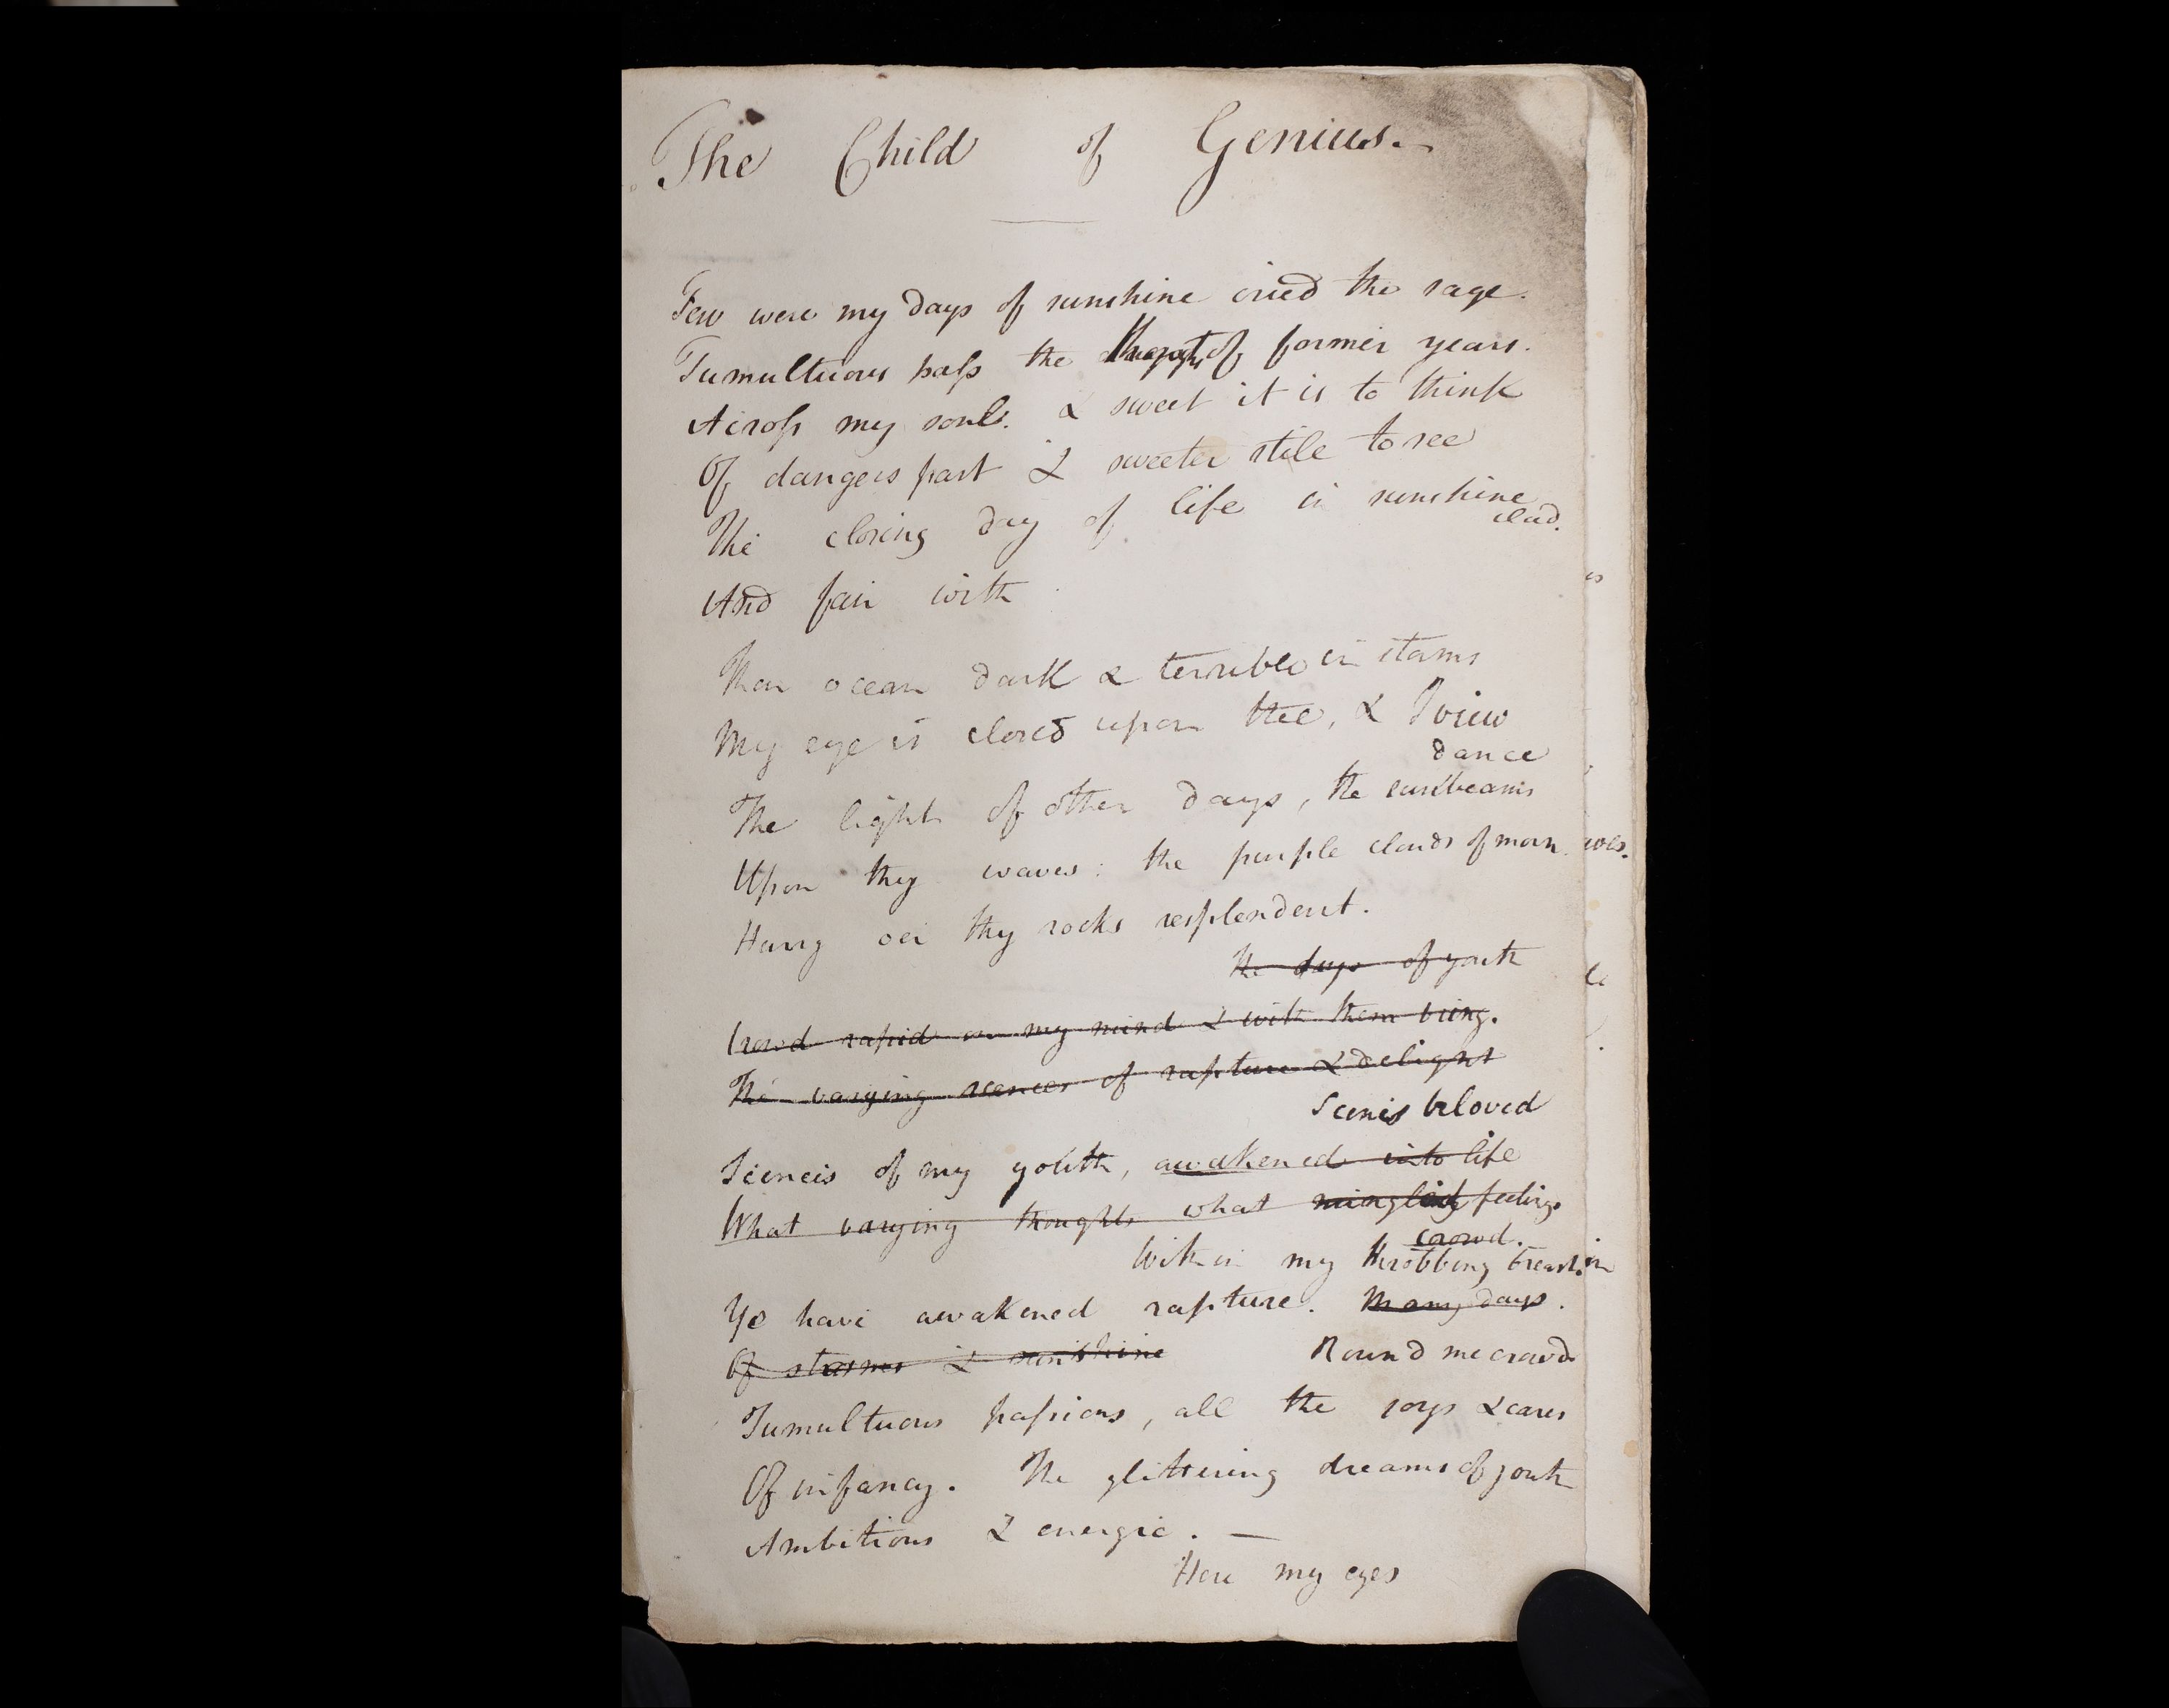 The Child of Genius.
Few were my days of sunshine cried the sage.
Tumultuous pass the thoughts of former years.
Across my soul. & sweet it is to think
Of dangers past & sweeter stile to see
The closing day of life in sunshine
clad.
And fair with
Thou ocean dark & terrible in storms
My eye is closed upon thee, & I view
dance
The light of other days, the sunbeams
Upon thy waves: the purple clouds of morn
Hang oer thy rocks resplendent.
the days of youth
Crowd rapid on my mind & with them bring.
The varying scenes of rapture & delight
Scenes beloved
Scenes of my youth, awakened into life
What varying thoughts what mingled feelings
crowd.
Within my throbbing breast.
Ye have awakened rapture. Many days.
Of storms & sunshine Round me crowd
Tumultuous passions, all the joys & cares
Of infancy. The glittering dreams of youth
Ambitious & energic. —
Here my eyes